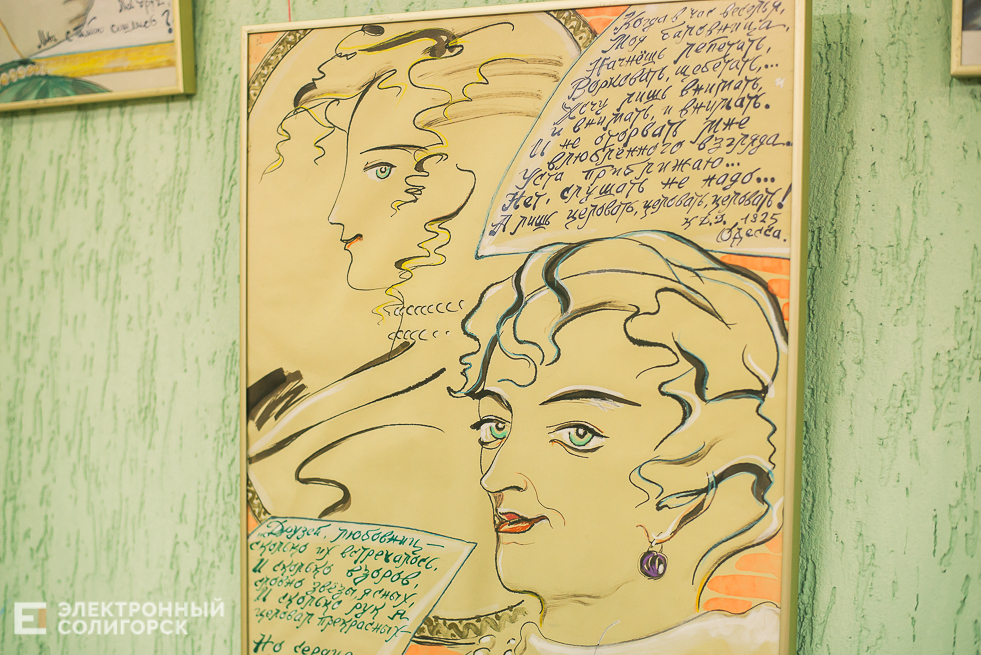 Когда в час веселья,
Моя баловница,
Начнёшь лепетать,
Ворковать, щебетать,...
Хочу лишь внимать,
и внимать, и внимать.
И не оторвать мне
влюблённого взгляда.
Уста приближаю...
Нет, слушать не надо...
А лишь целовать, целовать, целовать!
1825
Одесса.
Друзей, любовниц —
сколько их встречалось,
И сколько взоров,
словно звёзды ясных,
И сколько рук я
целовал прекрасных —
Но сердце
ЭЛЕКТРОННЫЙ
СОЛИГОРСК